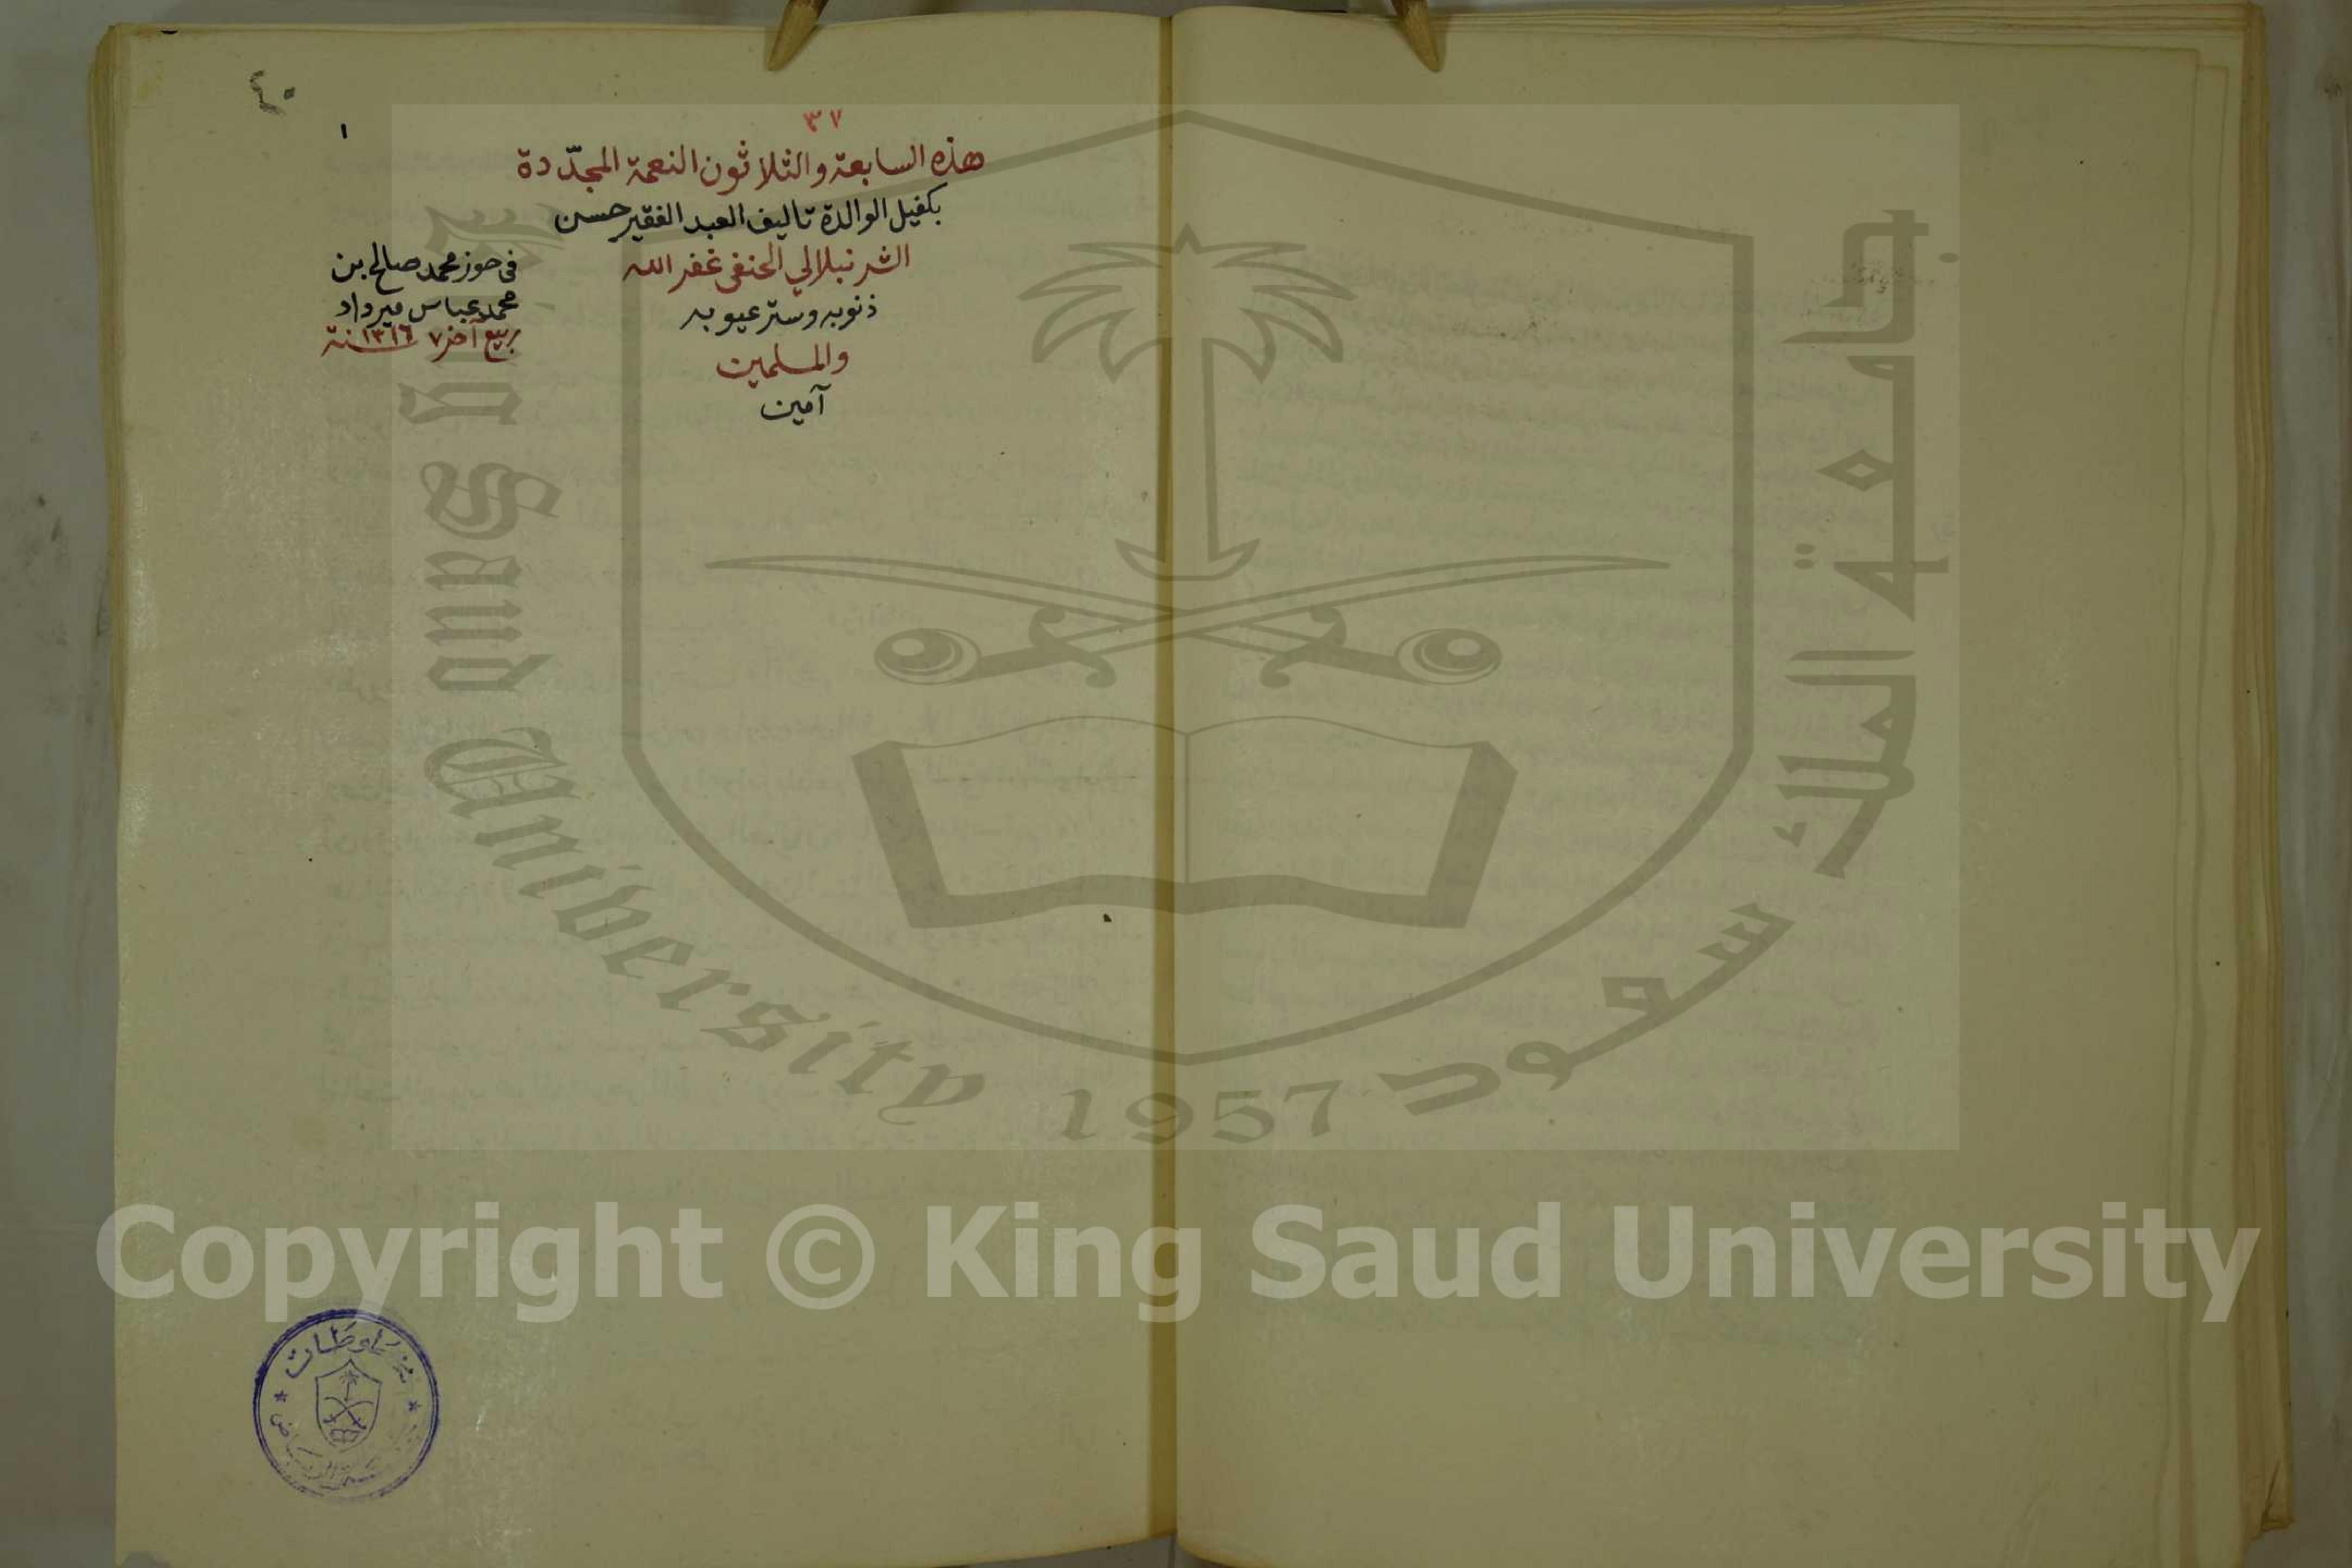 ٤٠
١
٣٧
هذه السابعة والثلاثون النعمة المجدّدة
بكفيل الوالدة تاليف العبد الفقير حسن
الشرنبلالي الحنفى غفر الله
ذنوبه وستر عيوبه
والمسلمين
آمين
فى حوز محمد صالح بن
محمد عباس ميرداد
ربيع آخر ٧ سنة ١٣١٦
جامعة الملك سعود
King Saud University 1957
Copyright © King Saud University
مخطوطات